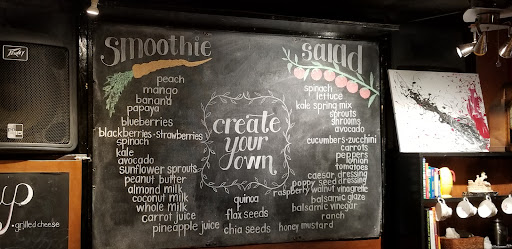 PEAVEY
smoothie
peach
mango
banana
papaya
blueberries
blackberries-strawberries
spinach
kale
avocado
sunflower sprouts
peanut butter
almond milk
coconut milk
whole milk
carrot juice
pineapple juice
create
your
own
quinoa
flax seeds
chia seeds
salad
spinach
lettuce
kale spring mix
sprouts
shrooms
avocado
cucumbers-zucchini
carrots
peppers
tomatoes
caesar dressing
poppy seed dressing
raspberry walnut vinagrette
balsamic glaze
balsamic vinegar
ranch
honey mustard
up
grilled cheese